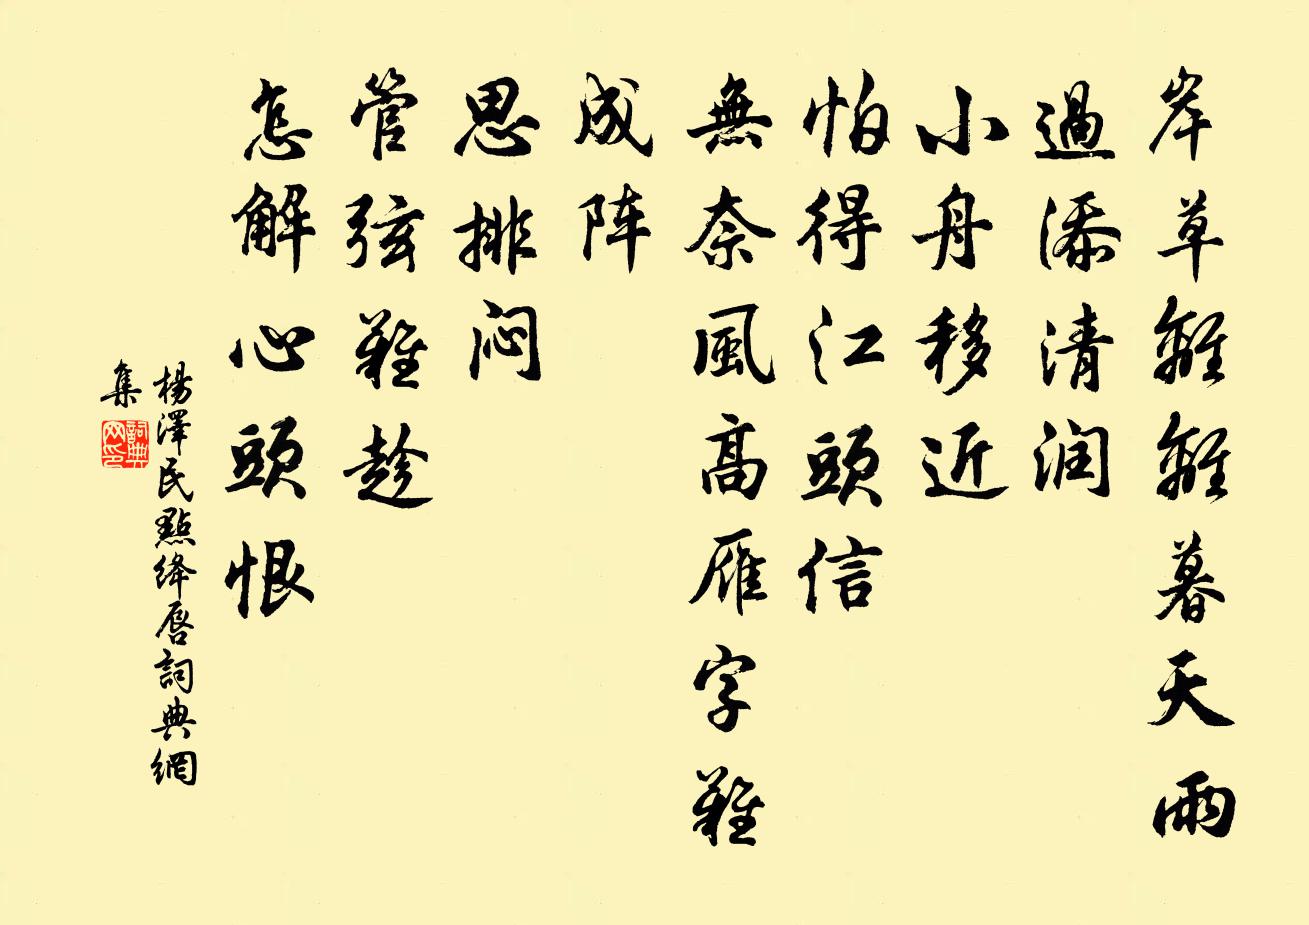 岸草離離暮天雨
過添清润
小舟移近
怕得江頭信
無奈風高雁字難
成阵
思排闷
管弦難趁
怎解心頭恨
楊澤民點绛唇詞典網
集
詞典
网印